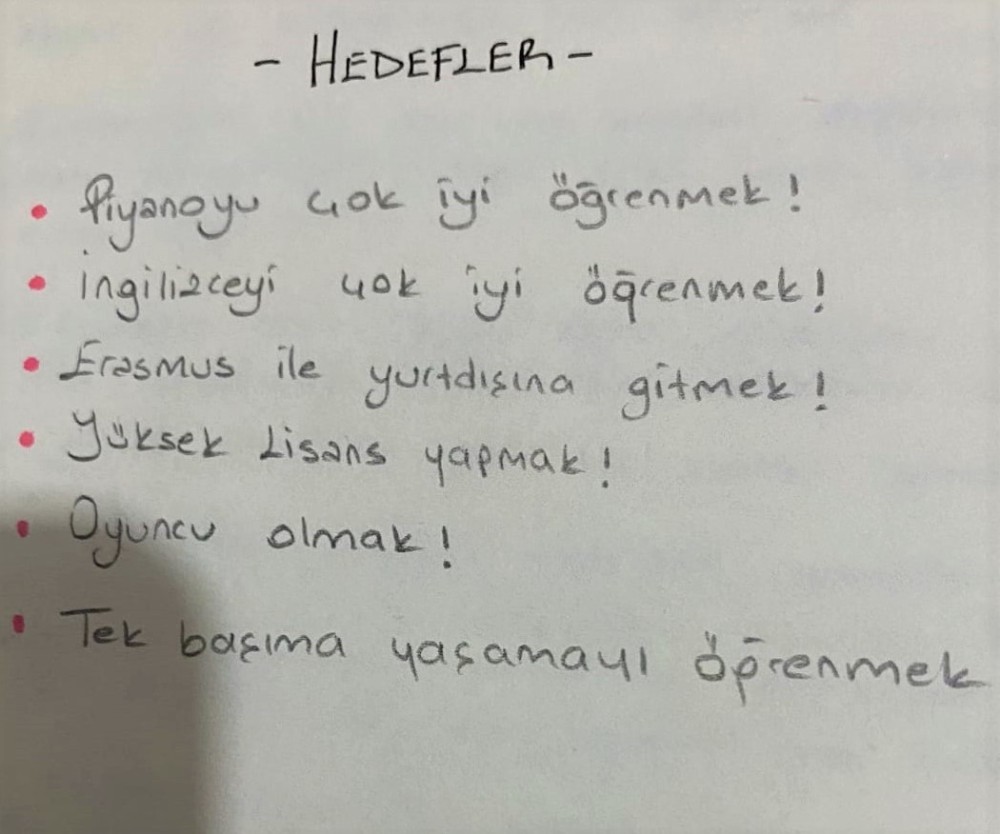 - HEDEFLER -
• Piyanoyu çok iyi öğrenmek!
• İngilizceyi çok iyi öğrenmek!
• Erasmus ile yurtdışına gitmek!
• Yüksek Lisans yapmak!
• Oyuncu olmak!
• Tek başıma yaşamayı öğrenmek